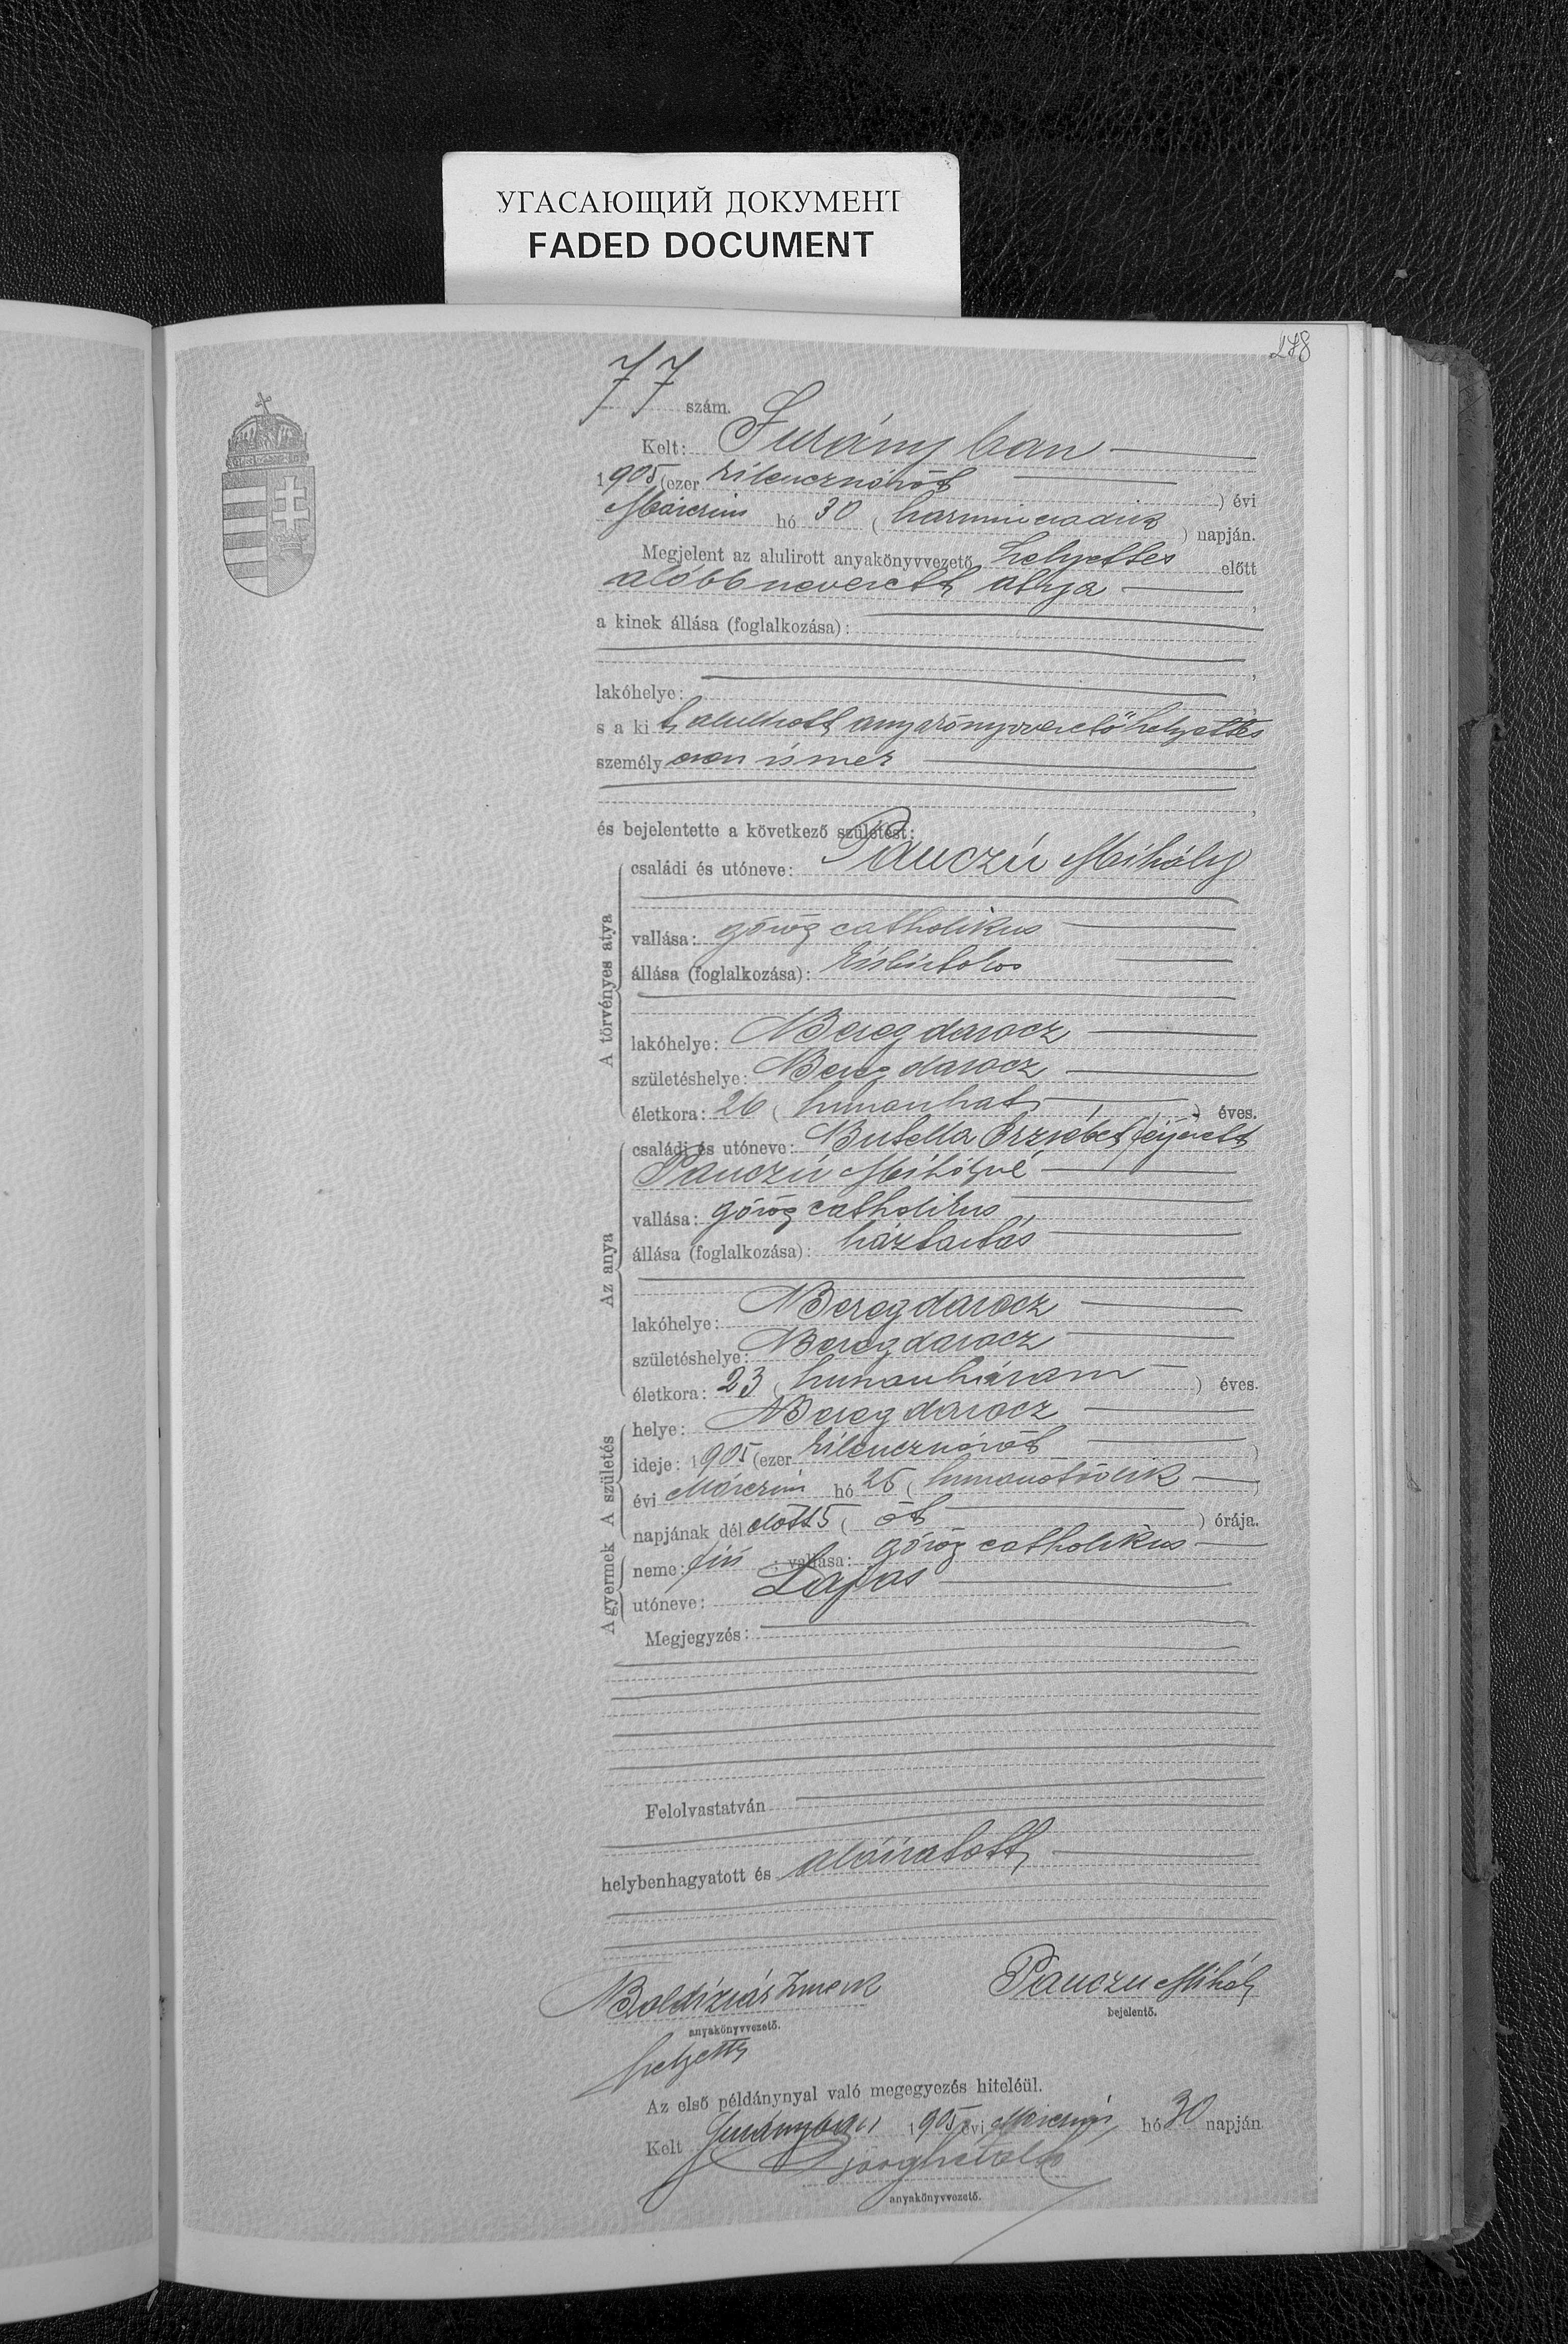 УГАСАЮЩИЙ ДОКУМЕНТ
FADED DOCUMENT
278
77 szám.
Kelt: Surányban
1905 (ezer kilenczszázöt ) évi
Márczius hó 30 ( harminczadik ) napján.
Megjelent az alulirott anyakönyvvezető helyettes előtt
alább nevezett atyja ,
a kinek állása (foglalkozása):
,
lakóhelye: ,
s a kit alulirott anyakönyvvezető helyettes
személyesen ismer
,
és bejelentette a következő születést:
A törvényes atya
családi és utóneve: Pauczú Mihály
vallása: görög catholikus
állása (foglalkozása): kisbirtokos
lakóhelye: Beregdarócz
születéshelye: Beregdarócz
életkora: 26 ( huszonhat ) éves.
Az anya
családi és utóneve: Butella Erzsébet férjezett
Pauczú Mihályné
vallása: görög catholikus
állása (foglalkozása): háztartás
lakóhelye: Beregdarócz
születéshelye: Beregdarócz
életkora: 23 ( huszonhárom ) éves.
A születés
helye: Beregdarócz
ideje: 1905 (ezer kilenczszázöt )
évi Márczius hó 25 ( huszonötödik )
napjának dél előtt 5 ( öt ) órája.
A gyermek
neme: fiú ; vallása: görög catholikus
utóneve: Lajos
Megjegyzés:
Felolvastatván
helybenhagyatott és aláiratott
Boldizsár Pauczu Mihály
anyakönyvvezető. bejelentő.
helyettes
Az első példánynyal való megegyezés hiteléül.
Kelt Surányban 1905 évi Márczius hó 30 napján.
anyakönyvvezető.